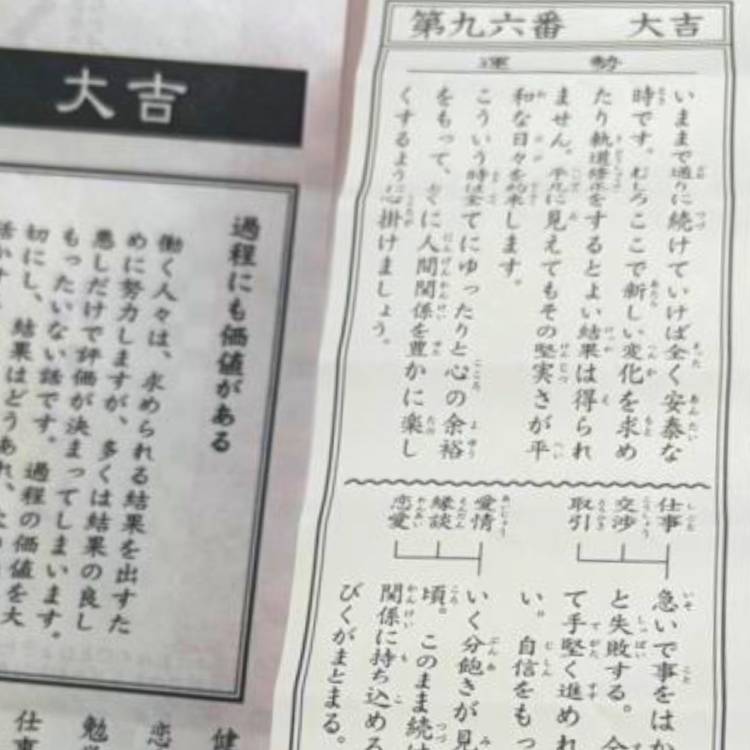 第九六番 大吉
運勢
いままで通りに続けていけば全く安泰な
時です。むしろここで新しい変化を求め
たり軌道修正をするとよい結果は得られ
ません。平凡に見えてもその堅実さが平
和な日々を約束します。
こういう時は全てにゆったりと心の余裕
をもって、とくに人間関係を豊かに楽し
くするように心掛けましょう。
仕事
交渉
取引
急いで事をはか
と失敗する。
て手堅く進めれ
い。自信をもっ
愛情
縁談
恋愛
いく分飽きが見
頃。このまま続け
関係に持ち込める
びくがまとまる。
大吉
過程にも価値がある
働く人々は、求められる結果を出すた
めに努力しますが、多くは結果の良し
悪しだけで評価が決まってしまいます。
もったいない話です。過程の価値を大
切にし、結果はどうあれ、
活かす
恋
仕事